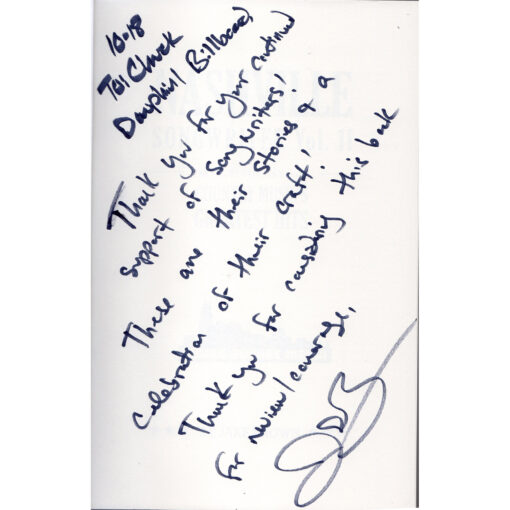 10-18
To: Chuck
Dauphin / Billboard
Thank you for your continued
support of songwriters!
These are their stories & a
celebration of their craft!
Thank you for considering this book
for review/coverage,
NASHVILLE
SONGWRITER Vol. II